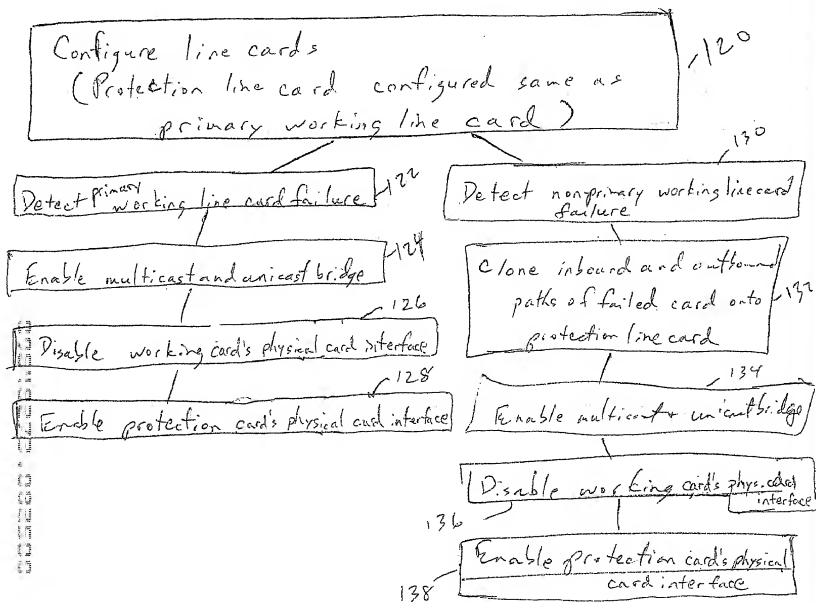 Configure line cards
(Protection line card configured same as
primary working line card)
120
Detect primary working line card failure
122
Enable multicast and unicast bridge
124
Disable working card's physical card interface
126
Enable protection card's physical card interface
128
130
Detect nonprimary working line card
failure
Clone inbound and outbound
paths of failed card onto
protection line card
132
134
Enable multicast + unicast bridge
Disable working card's phys. card
interface
136
Enable protection card's physical
card interface
138